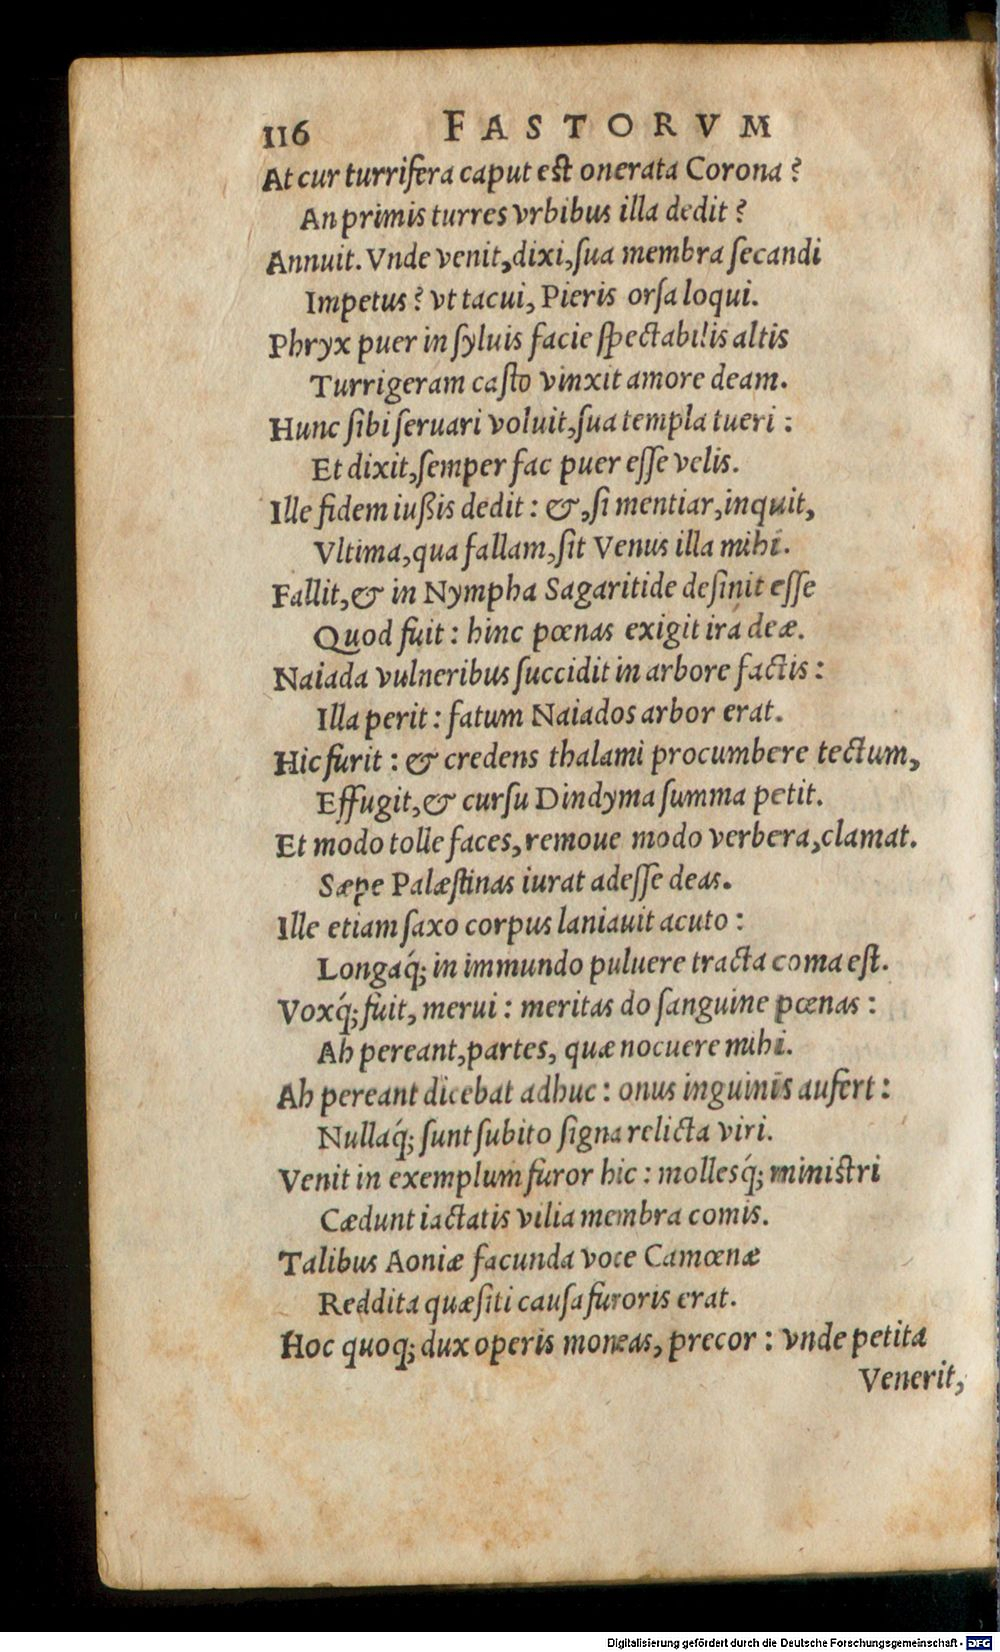 116 FASTORVM
At cur turrifera caput est onerata Corona?
An primis turres vrbibus illa dedit?
Annuit. Vnde venit, dixi, ſua membra ſecandi
Impetus? vt tacui, Pieris orſa loqui.
Phryx puer in ſyluis facie ſpectabilis altis
Turrigeram caſto vinxit amore deam.
Hunc ſibi ſeruari voluit, ſua templa tueri:
Et dixit, ſemper fac puer eſſe velis.
Ille fidem iußis dedit: &, ſi mentiar, inquit,
Vltima, qua fallam, ſit Venus illa mihi.
Fallit, & in Nympha Sagaritide deſinit eſſe
Quod fuit: hinc pœnas exigit ira deæ.
Naiada vulneribus ſuccidit in arbore factis:
Illa perit: fatum Naiados arbor erat.
Hic furit: & credens thalami procumbere tectum,
Effugit, & curſu Dindyma ſumma petit.
Et modo tolle faces, remoue modo verbera, clamat.
Sæpe Palæſtinas iurat adeſſe deas.
Ille etiam ſaxo corpus laniauit acuto:
Longaq́; in immundo puluere tracta coma eſt.
Voxq́; fuit, merui: meritas do ſanguine pœnas:
Ah pereant, partes, quæ nocuere mihi.
Ah pereant dicebat adhuc: onus inguinis aufert:
Nullaq́; ſunt ſubito ſigna relicta viri.
Venit in exemplum furor hic: mollesq́; miniſtri
Cædunt iactatis vilia membra comis.
Talibus Aoniæ facunda voce Camœnæ
Reddita quæſiti cauſa furoris erat.
Hoc quoq; dux operis moneas, precor: vnde petita
Venerit,
Digitalisierung gefördert durch die Deutsche Forschungsgemeinschaft - DFG